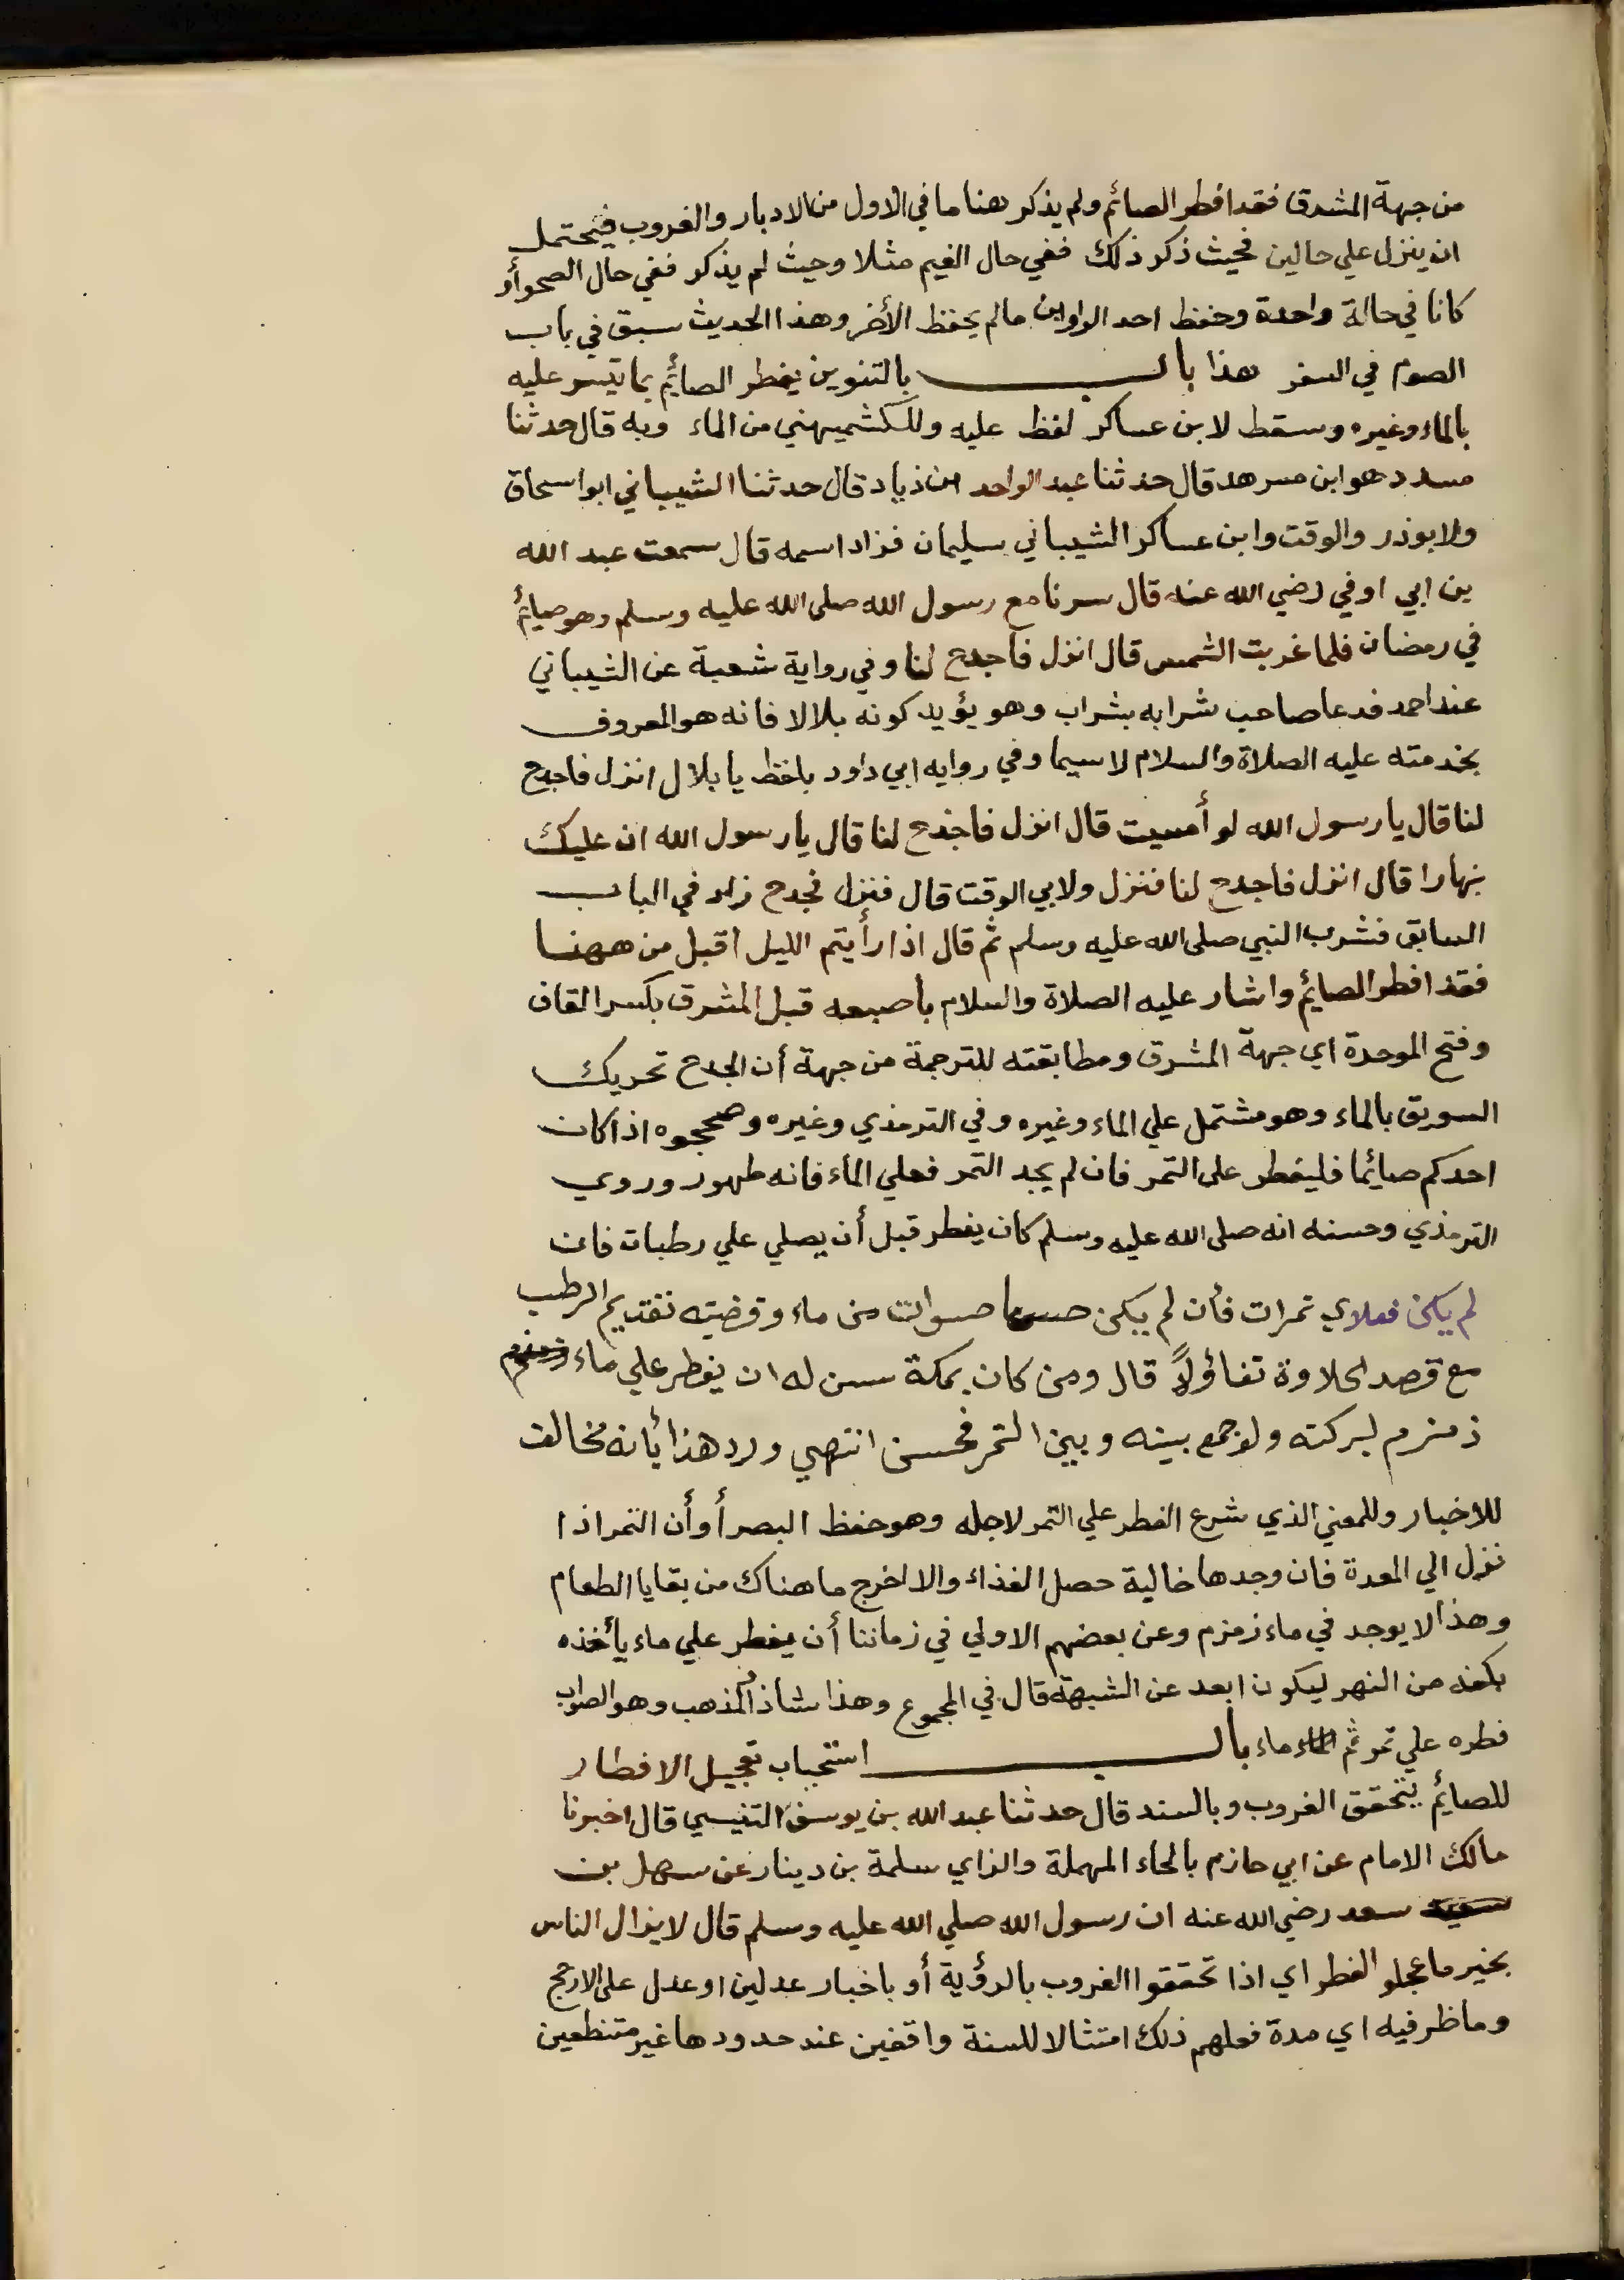 من جهة المشرق فقد افطر الصائم ولم يذكر هنا ما في الاول من الادبار والغروب فيحتمل
ان ينزل علي حالين فحيث ذكر ذلك ففي حال الغيم مثلا وحيث لم يذكر ففي حال الصحو أو
كانا في حالة واحدة وحفظ احد الراويين مالم يحفظ الأخر وهذا الحديث سبق في باب
الصوم في السفر هذا باب بالتنوين يفطر الصائم بما تيسر عليه
بالماء وغيره وسقط لابن عساكر لفظ عليه وللكشميهني من الماء وبه قال حدثنا
مسدد هو ابن مسرهد قال حدثنا عبد الواحد بن زياد قال حدثنا الشيباني ابو اسحاق
ولابوذر والوقت وابن عساكر الشيباني سليمان فزاد اسمه قال سمعت عبد الله
بن ابي اوفي رضي الله عنه قال سرنا مع رسول الله صلى الله عليه وسلم وهو صايم
في رمضان فلما غربت الشمس قال انزل فاجدح لنا وفي رواية شعبة عن الشيباني
عند احمد فدعا صاحب شرابه بشراب وهو يؤيد كونه بلالا فانه هو المعروف
بخدمته عليه الصلاة والسلام لاسيما وفي روايه ابي داود بلفظ يا بلال انزل فاجدح
لنا قال يا رسول الله لو أمسيت قال انزل فاجدح لنا قال يا رسول الله ان عليك
نهارا قال انزل فاجدح لنا فنزل ولابي الوقت قال فنزل فجدح زاد في الباب
السابق فشرب النبي صلى الله عليه وسلم ثم قال اذا رأيتم الليل اقبل من ههنا
فقد افطر الصائم واشار عليه الصلاة والسلام بأصبعه قبل المشرق بكسر القاف
وفتح الموحدة اي جهة المشرق ومطابقته للترجمة من جهة أن الجدح تحريك
السويق بالماء وهو مشتمل علي الماء وغيره وفي الترمذي وغيره وصححوه اذا كان
احدكم صائما فليفطر على التمر فان لم يجد التمر فعلي الماء فانه طهور وروي
الترمذي وحسنه انه صلى الله عليه وسلم كان يفطر قبل أن يصلي علي رطبات فان
لم يكن فعلاي تمرات فأن لم يكن حسا حسوات من ماء وقضيته تقديم الرطب
مع قصد الحلاوة تفاؤلاً قال ومن كان بمكة سن له ان يفطر علي ماء
زمزم لبركته ولو جمع بينه وبين التمر فحسن انتهي ورد هذا بأنه مخالف
للاخبار وللمعني الذي شرع الفطر علي التمر لاجله وهو حفظ البصر أو أن التمر اذا
نزل الي المعدة فان وجدها خالية حصل الغذاء والا اخرج ما هناك من بقايا الطعام
وهذا لا يوجد في ماء زمزم وعن بعضهم الاولي في زماننا أن يفطر علي ماء يأخذه
بكفه من النهر ليكون ابعد عن الشبهة قال في المجموع وهذا شاذ المذهب وهو الصواب
فطره علي تمر ثم ماء باب استحباب تعجيل الافطار
للصائم بتحقق الغروب وبالسند قال حدثنا عبد الله بن يوسف التنيسي قال اخبرنا
مالك الامام عن ابي حازم بالحاء المهملة والزاي سلمة بن دينار عن سهل بن
سعد رضي الله عنه ان رسول الله صلي الله عليه وسلم قال لا يزال الناس
بخير ما عجلو الفطر اي اذا تحققوا الغروب بالرؤية أو باخبار عدلين او عدل على الارجح
وما ظرفيه اي مدة فعلهم ذلك امتثالا للسنة واقفين عند حدودها غير متنطعين